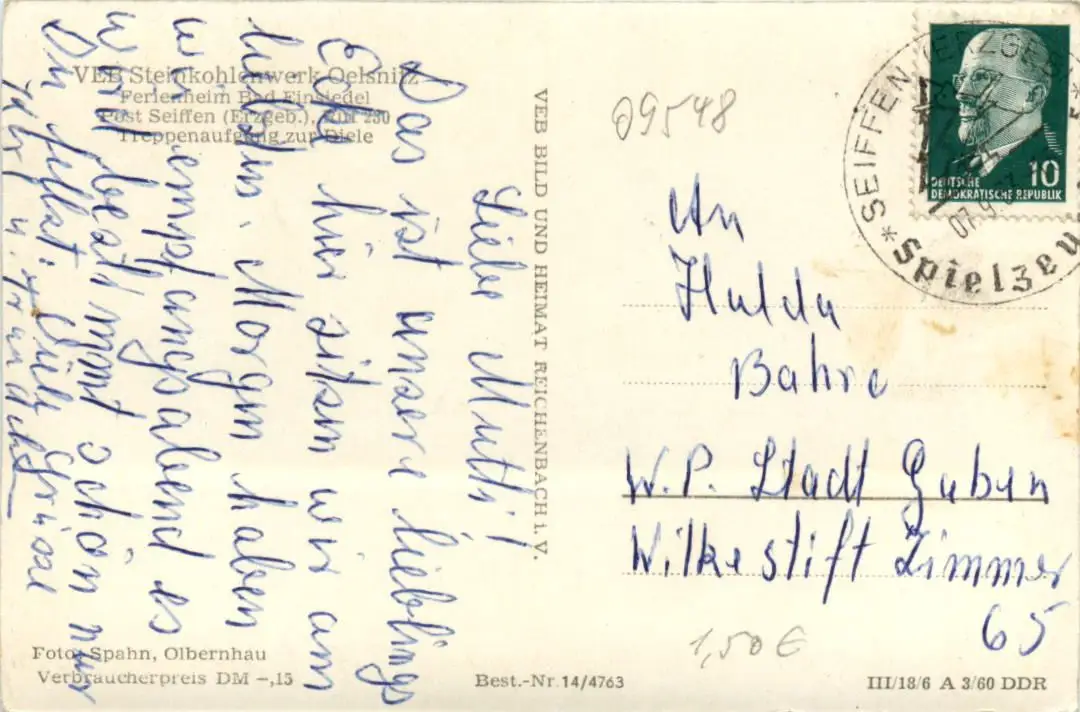 VEB Steinkohlenwerk Oelsnitz
Ferienheim Bad Einsiedel
Post Seiffen (Erzgeb.), Ruf 230
Treppenaufgang zur Diele
Liebe Mutti!
Das ist unsere lieblings
Ecke hier sitzen wir am
liebsten. Morgen haben
wir empfangsabend es
wird bestimmt schön nur
Du fehlst. Viele Grüsse
u.
Foto: Spahn, Olbernhau
Verbraucherpreis DM -,15
VEB BILD UND HEIMAT REICHENBACH i. V.
Best.-Nr. 14/4763
09548
SEIFFEN (ERZGEB)
Spielzeu
DEUTSCHE
DEMOKRATISCHE REPUBLIK
10
An
Hulda
Bahre
W.P. Stadt Guben
Wilkestift Zimmer
65
1,50 €
III/18/6 A 3/60 DDR